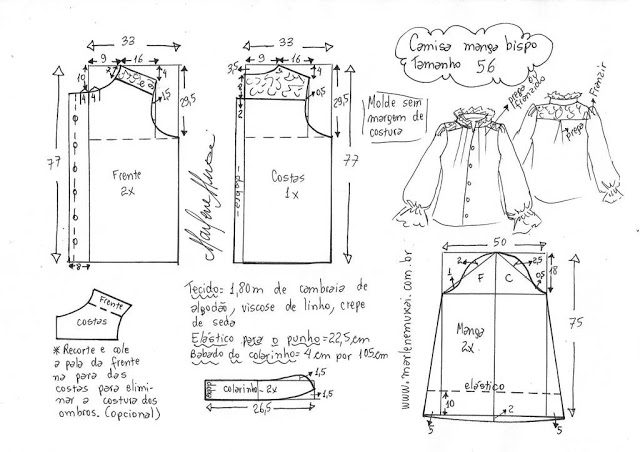 33
9
16
10
2
4
1,5
29,5
4
4
77
Frente
2x
8
33
3,5
9
16
4
8
2
0,5
29,5
77
dobra
Costas
1x
Marlene Mukai
Camisa manga bispo
Tamanho 56
Molde sem
margem de
costura
prega ou
franzido
Franzir
prega
Frente
costas
* Recorte e cole
a pala da frente
na para das
costas para elimi-
nar a costura dos
ombros. (opcional)
Tecido= 1,80m de cambraia de
algodão, viscose de linho, crepe
de seda
Elástico para o punho=22,5cm
Babado do colarinho= 4cm por 105cm
colarinho - 2x
1,5
1,5
26,5
www.marlenemukai.com.br
50
2
2,5
1
F
C
0,5
18
Manga
2x
75
elástico
10
2
5
5